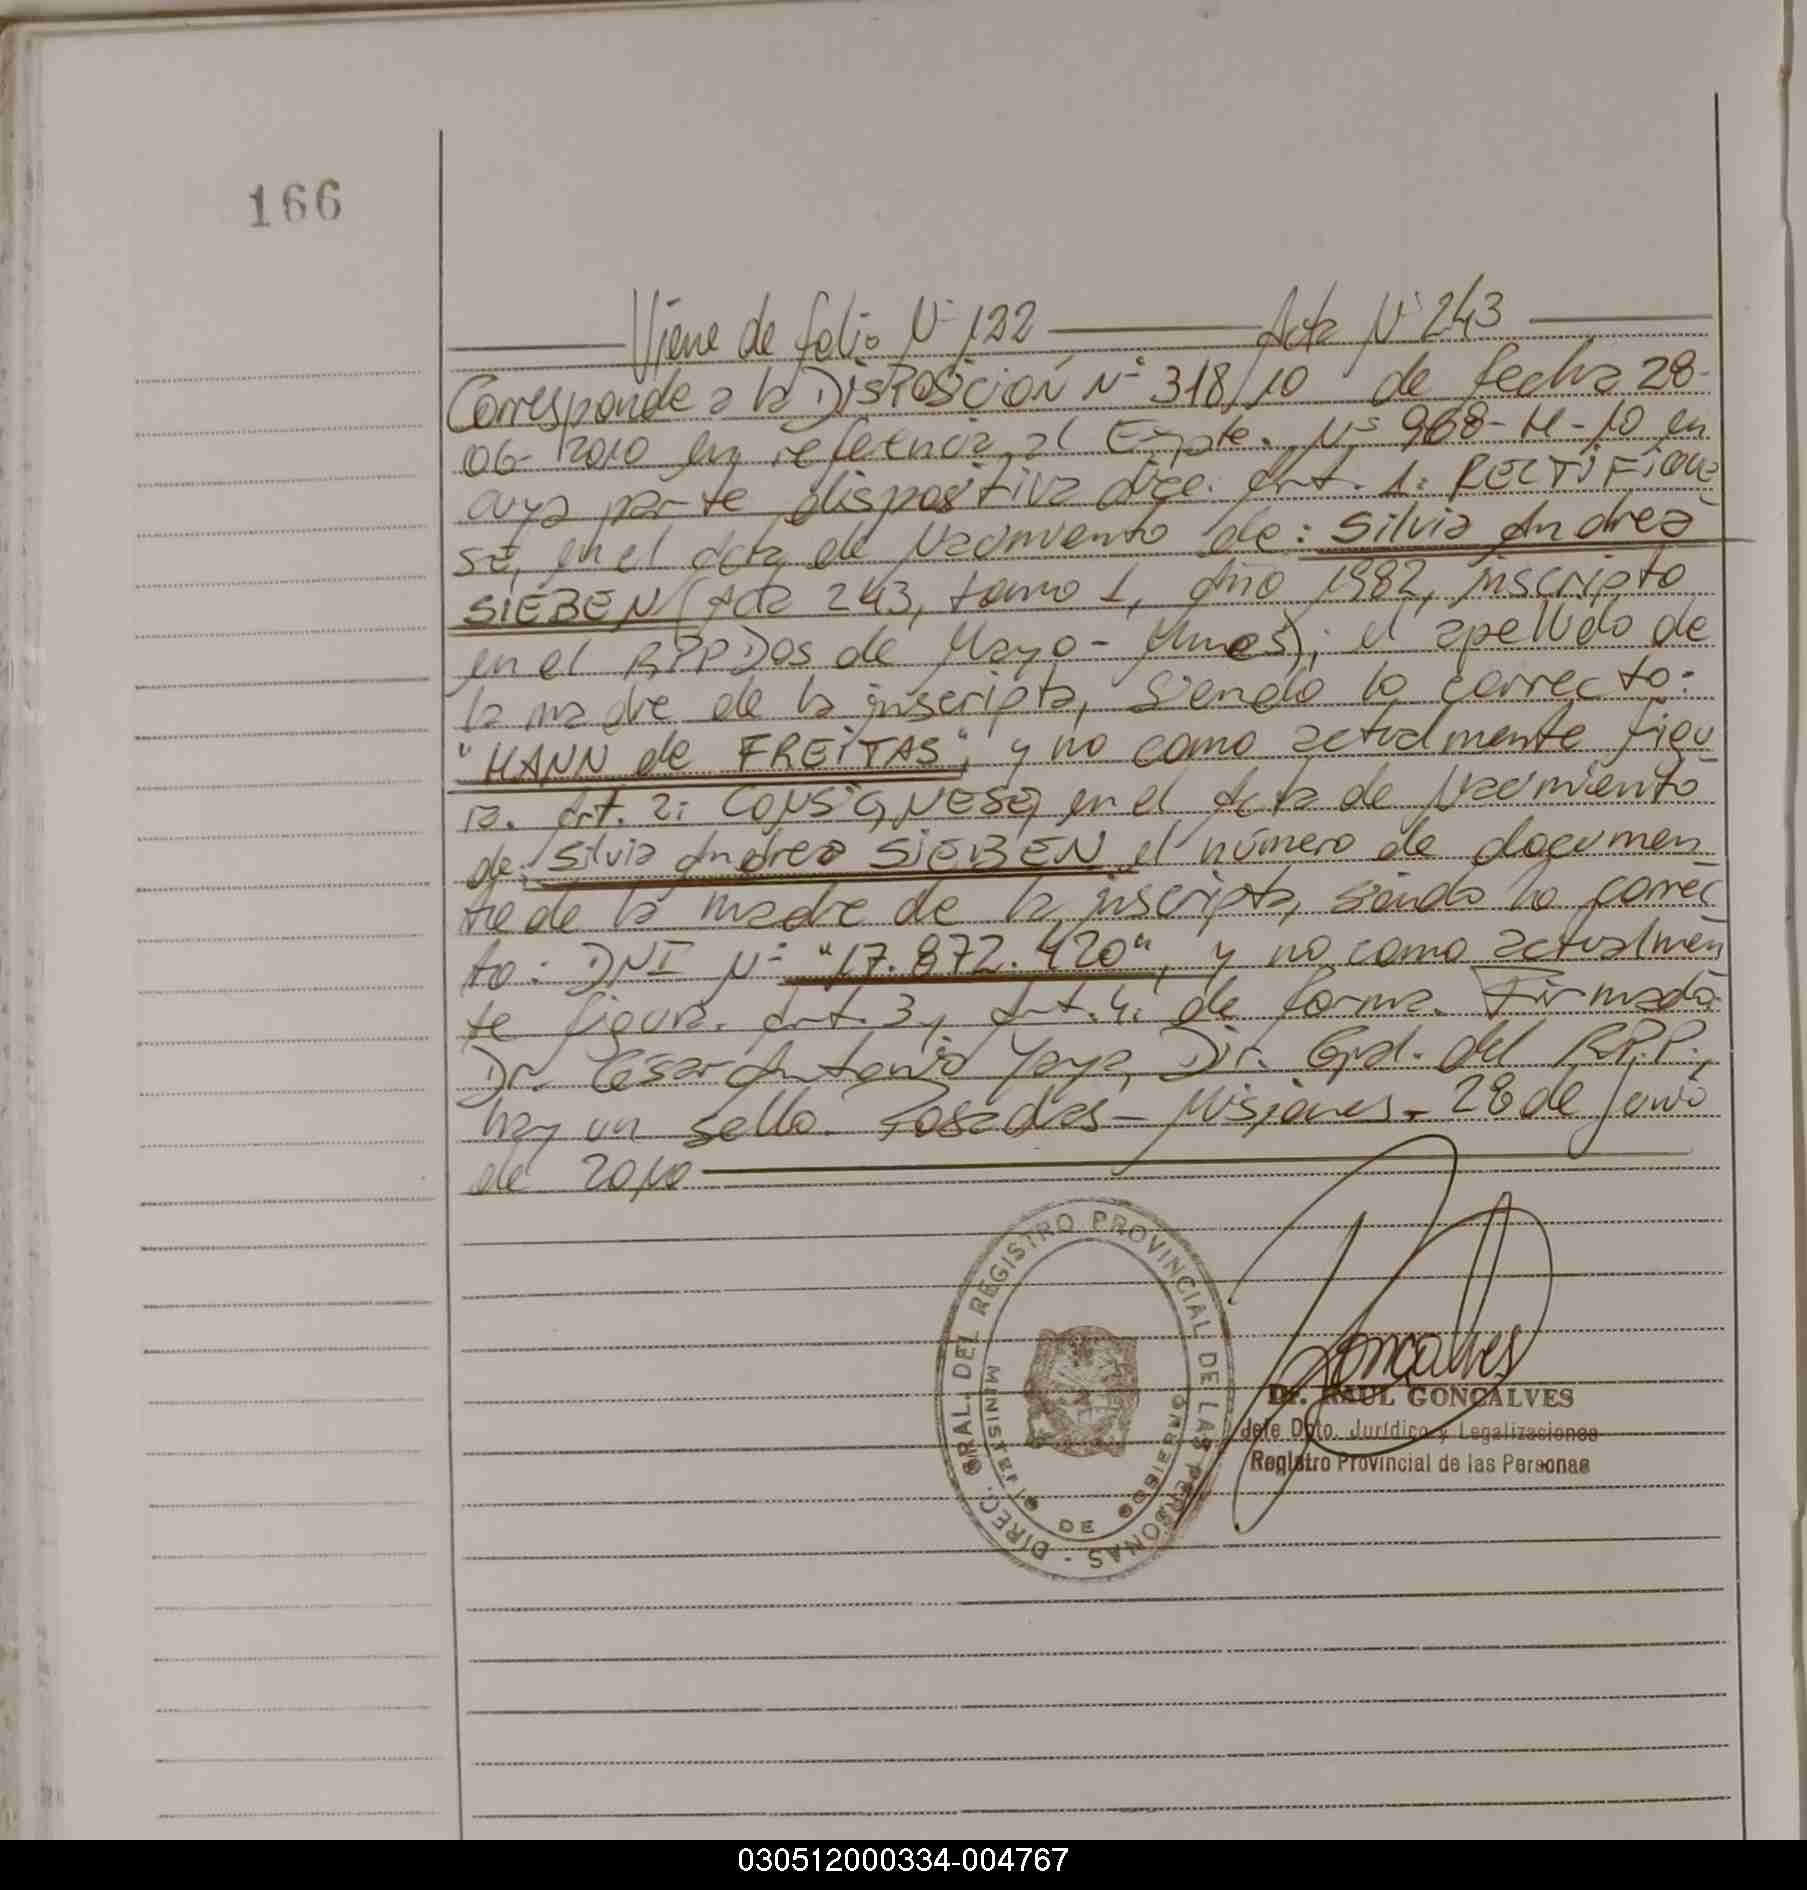 166
Viene de folio Nº 122 Acta Nº 243
Corresponde a la DISPOSICIÓN Nº 318/10 de fecha 28-
06-2010 en refetencia al Expte. Nº 968-H-10 en
cuya parte dispositiva dice: Art. 1: RECTIFIQUE
SE, en el Acta de Nacimiento de: Silvia Andrea
SIEBEN (Acta 243, tomo 1, Año 1982, inscripto
en el RPPDos de Mayo - Mnes); el apellido de
la madre de la inscripta, Siendo lo correcto:
"HANN de FREITAS", y no como actualmente figu
ra. Art. 2: CONSIGNESE, en el Acta de Nacimiento
de: Silvia Andrea SIEBEN el número de documen
to de la madre de la inscripta, siendo lo correc
to: DNI Nº "17.872.420", y no como actualmen
te figura. Art. 3 y Art. 4: de forma. Firmado:
Dr. César Antonio Yaya, Dir. Gral. del R.P.P.,
hay un sello. Posadas - Misiones. 28 de Junio
de 2010
DIREC. GRAL. DEL REGISTRO PROVINCIAL DE LAS PERSONAS -
MINISTERIO DE GOBIERNO
Goncalves
Dr. RAUL GONCALVES
Jefe Dpto. Jurídico y Legalizaciones
Registro Provincial de las Personas
030512000334-004767